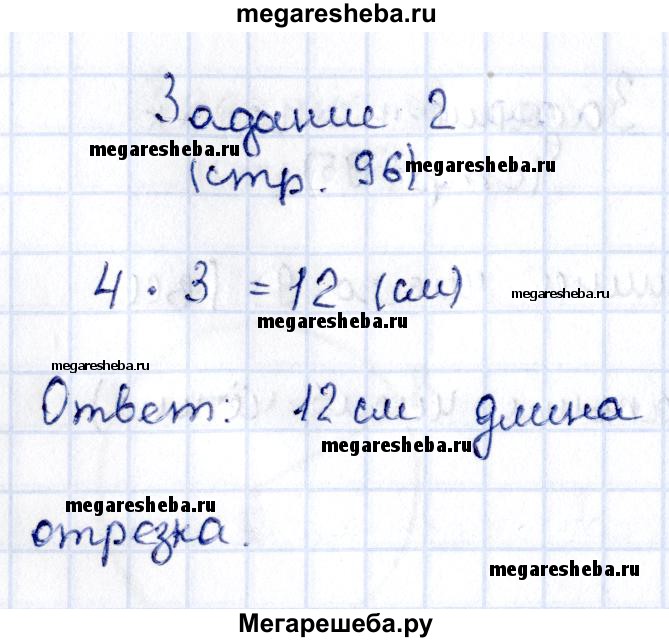 megaresheba.ru
Задание 2
megaresheba.ru
(стр. 96)
megaresheba.ru
4 · 3 = 12 (см)
megaresheba.ru
megaresheba.ru
megaresheba.ru
Ответ: 12 см длина
megaresheba.ru
megaresheba.ru
отрезка.
megaresheba.ru
Мегарешеба.ру